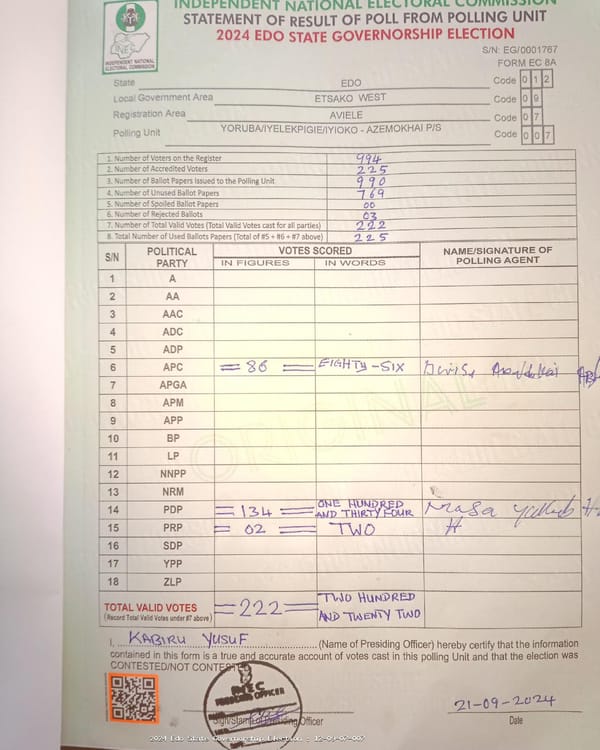 INDEPENDENT NATIONAL ELECTORAL COMMISSION
STATEMENT OF RESULT OF POLL FROM POLLING UNIT
2024 EDO STATE GOVERNORSHIP ELECTION
INEC
INDEPENDENT NATIONAL
ELECTORAL COMMISSION
S/N: EG/0001767
FORM EC 8A
State EDO Code 0 1 2
Local Government Area ETSAKO WEST Code 0 9
Registration Area AVIELE Code 0 7
Polling Unit YORUBA/IYELEKPIGIE/IYIOKO - AZEMOKHAI P/S Code 0 0 7
1. Number of Voters on the Register 994
2. Number of Accredited Voters 225
3. Number of Ballot Papers Issued to the Polling Unit 990
4. Number of Unused Ballot Papers 769
5. Number of Spoiled Ballot Papers 00
6. Number of Rejected Ballots 03
7. Number of Total Valid Votes (Total Valid Votes cast for all parties) 222
8. Total Number of Used Ballots Papers (Total of #5 + #6 + #7 above) 225
S/N POLITICAL PARTY VOTES SCORED NAME/SIGNATURE OF POLLING AGENT
IN FIGURES IN WORDS
1 A
2 AA
3 AAC
4 ADC
5 ADP
6 APC = 86 = EIGHTY-SIX
7 APGA
8 APM
9 APP
10 BP
11 LP
12 NNPP
13 NRM
14 PDP = 134 = ONE HUNDRED AND THIRTY FOUR
15 PRP = 02 = TWO
16 SDP
17 YPP
18 ZLP
ORIGINAL
TOTAL VALID VOTES =222= TWO HUNDRED
(Record Total Valid Votes under #7 above) AND TWENTY TWO
I, KABIRU YUSUF (Name of Presiding Officer) hereby certify that the information
contained in this form is a true and accurate account of votes cast in this polling Unit and that the election was
CONTESTED/NOT CONTESTED
INEC
PRESIDING OFFICER
21-09-2024
Sign/Stamp of Presiding Officer Date
2024 Edo State Governorship Election - 12-09-07-007